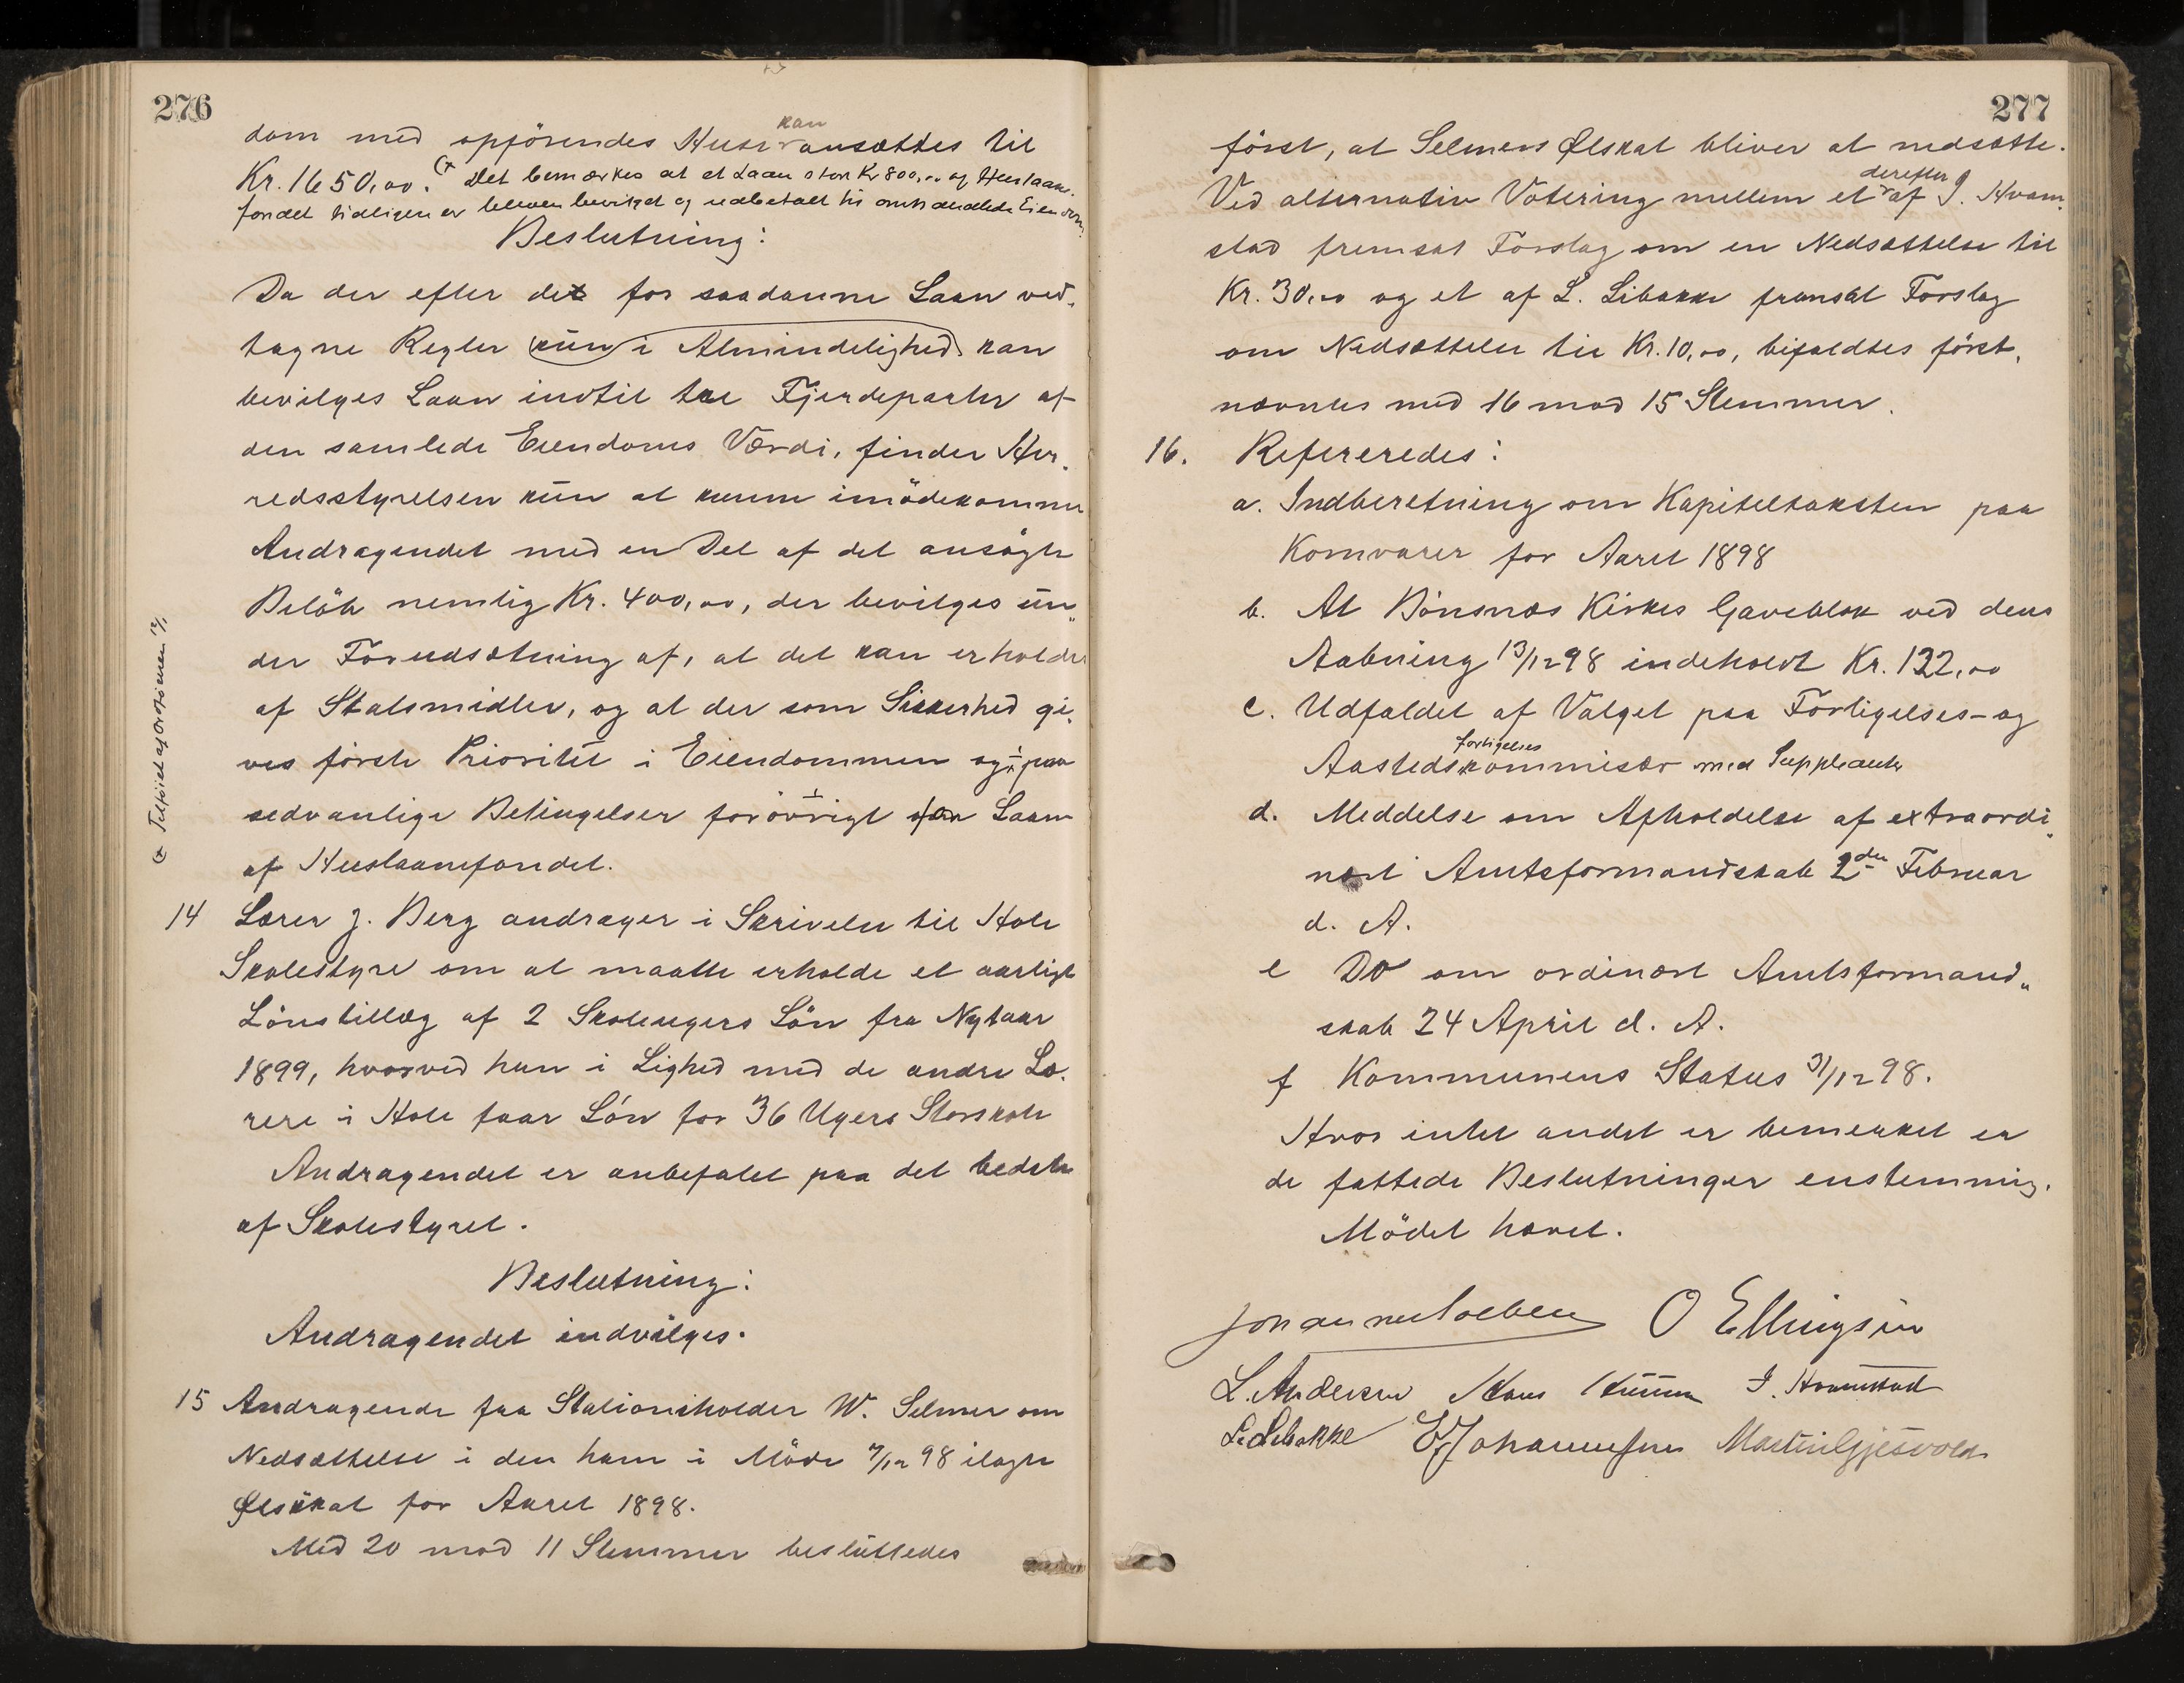 276
dom med opförendes Huse kan ansættes til
Kr. 1650,00. (x Det bemærkes at et Laan stort Kr 800,00 af Huslaane-
fondet tidligere er bleven bevilget og udbetalt til omhandlede Eiendom.
Beslutning:
Da der efter de for saadanne Laan ved-
tagne Regler kun i Almindelighed kan
bevilges Laan indtil tre Fjerdeparter af
den samlede Eiendoms Værdi, finder Her-
redsstyrelsen kun at kunne imödekomme
Andragendet med en Del af det ansögte
Belöb nemlig Kr. 400,00, der bevilges un-
der Forudsætning af, at det kan erholdes
af Statsmidler, og at der som Sikkerhed gi-
ves förste Prioritet i Eiendommen og paa
sedvanlige Betingelser forövrigt for Laan
af Huslaanefondet.
(x Tilföiet af Ordföreren
14 Lærer J. Berg andrager i Skrivelse til Hole
Skolestyre om at maatte erholde et aarligt
Lönstillæg af 2 Skoleugers Lön fra Nytaar
1899, hvorved han i Lighed med de andre Læ-
rere i Hole faar Lön for 36 Ugers Storskole
Andragendet er anbefalet paa det bedste
af Skolestyret.
Beslutning:
Andragendet indvilges.
15 Andragende fra Stationsholder W. Selmer om
Nedsættelse i den ham i Möde 7/12 98 ilagte
Ølskat for Aaret 1898.
Med 20 mod 11 Stemmer besluttedes
277
först, at Selmers Ølskat bliver at nedsætte.
Ved alternativ Votering mellem et derefter af J. Hvam-
stad fremsat Forslag om en Nedsættelse til
Kr. 30,00 og et af L. Libakke fremsat Forslag
om Nedsættelse til Kr. 10,00, bifaldtes först-
nævntes med 16 mod 15 Stemmer.
16. Refereredes:
a. Indberetning om Kapiteltaksten paa
Kornvarer for Aaret 1898
b. At Bönsnæs Kirkes Gaveblok ved dens
Aabning 13/12 98 indeholdt Kr. 122,00
c. Udfaldet af Valget paa Forligelses- og
Aastedsforligelseskommisær med Suppleanter
d. Meddelse om Afholdelse af extraordi-
nært Amtsformandskab 2den Februar
d. A.
e Do om ordinært Amtsformand-
skab 24 April d. A.
f Kommunens Status 31/12 98.
Hvor intet andet er bemerket er
de fattede Beslutninger enstemmig.
Mödet hævet.
O Ellingsen
L. Andersen Hans J. Hvamstad
L. Libakke Johannesen Martin Gjesvold